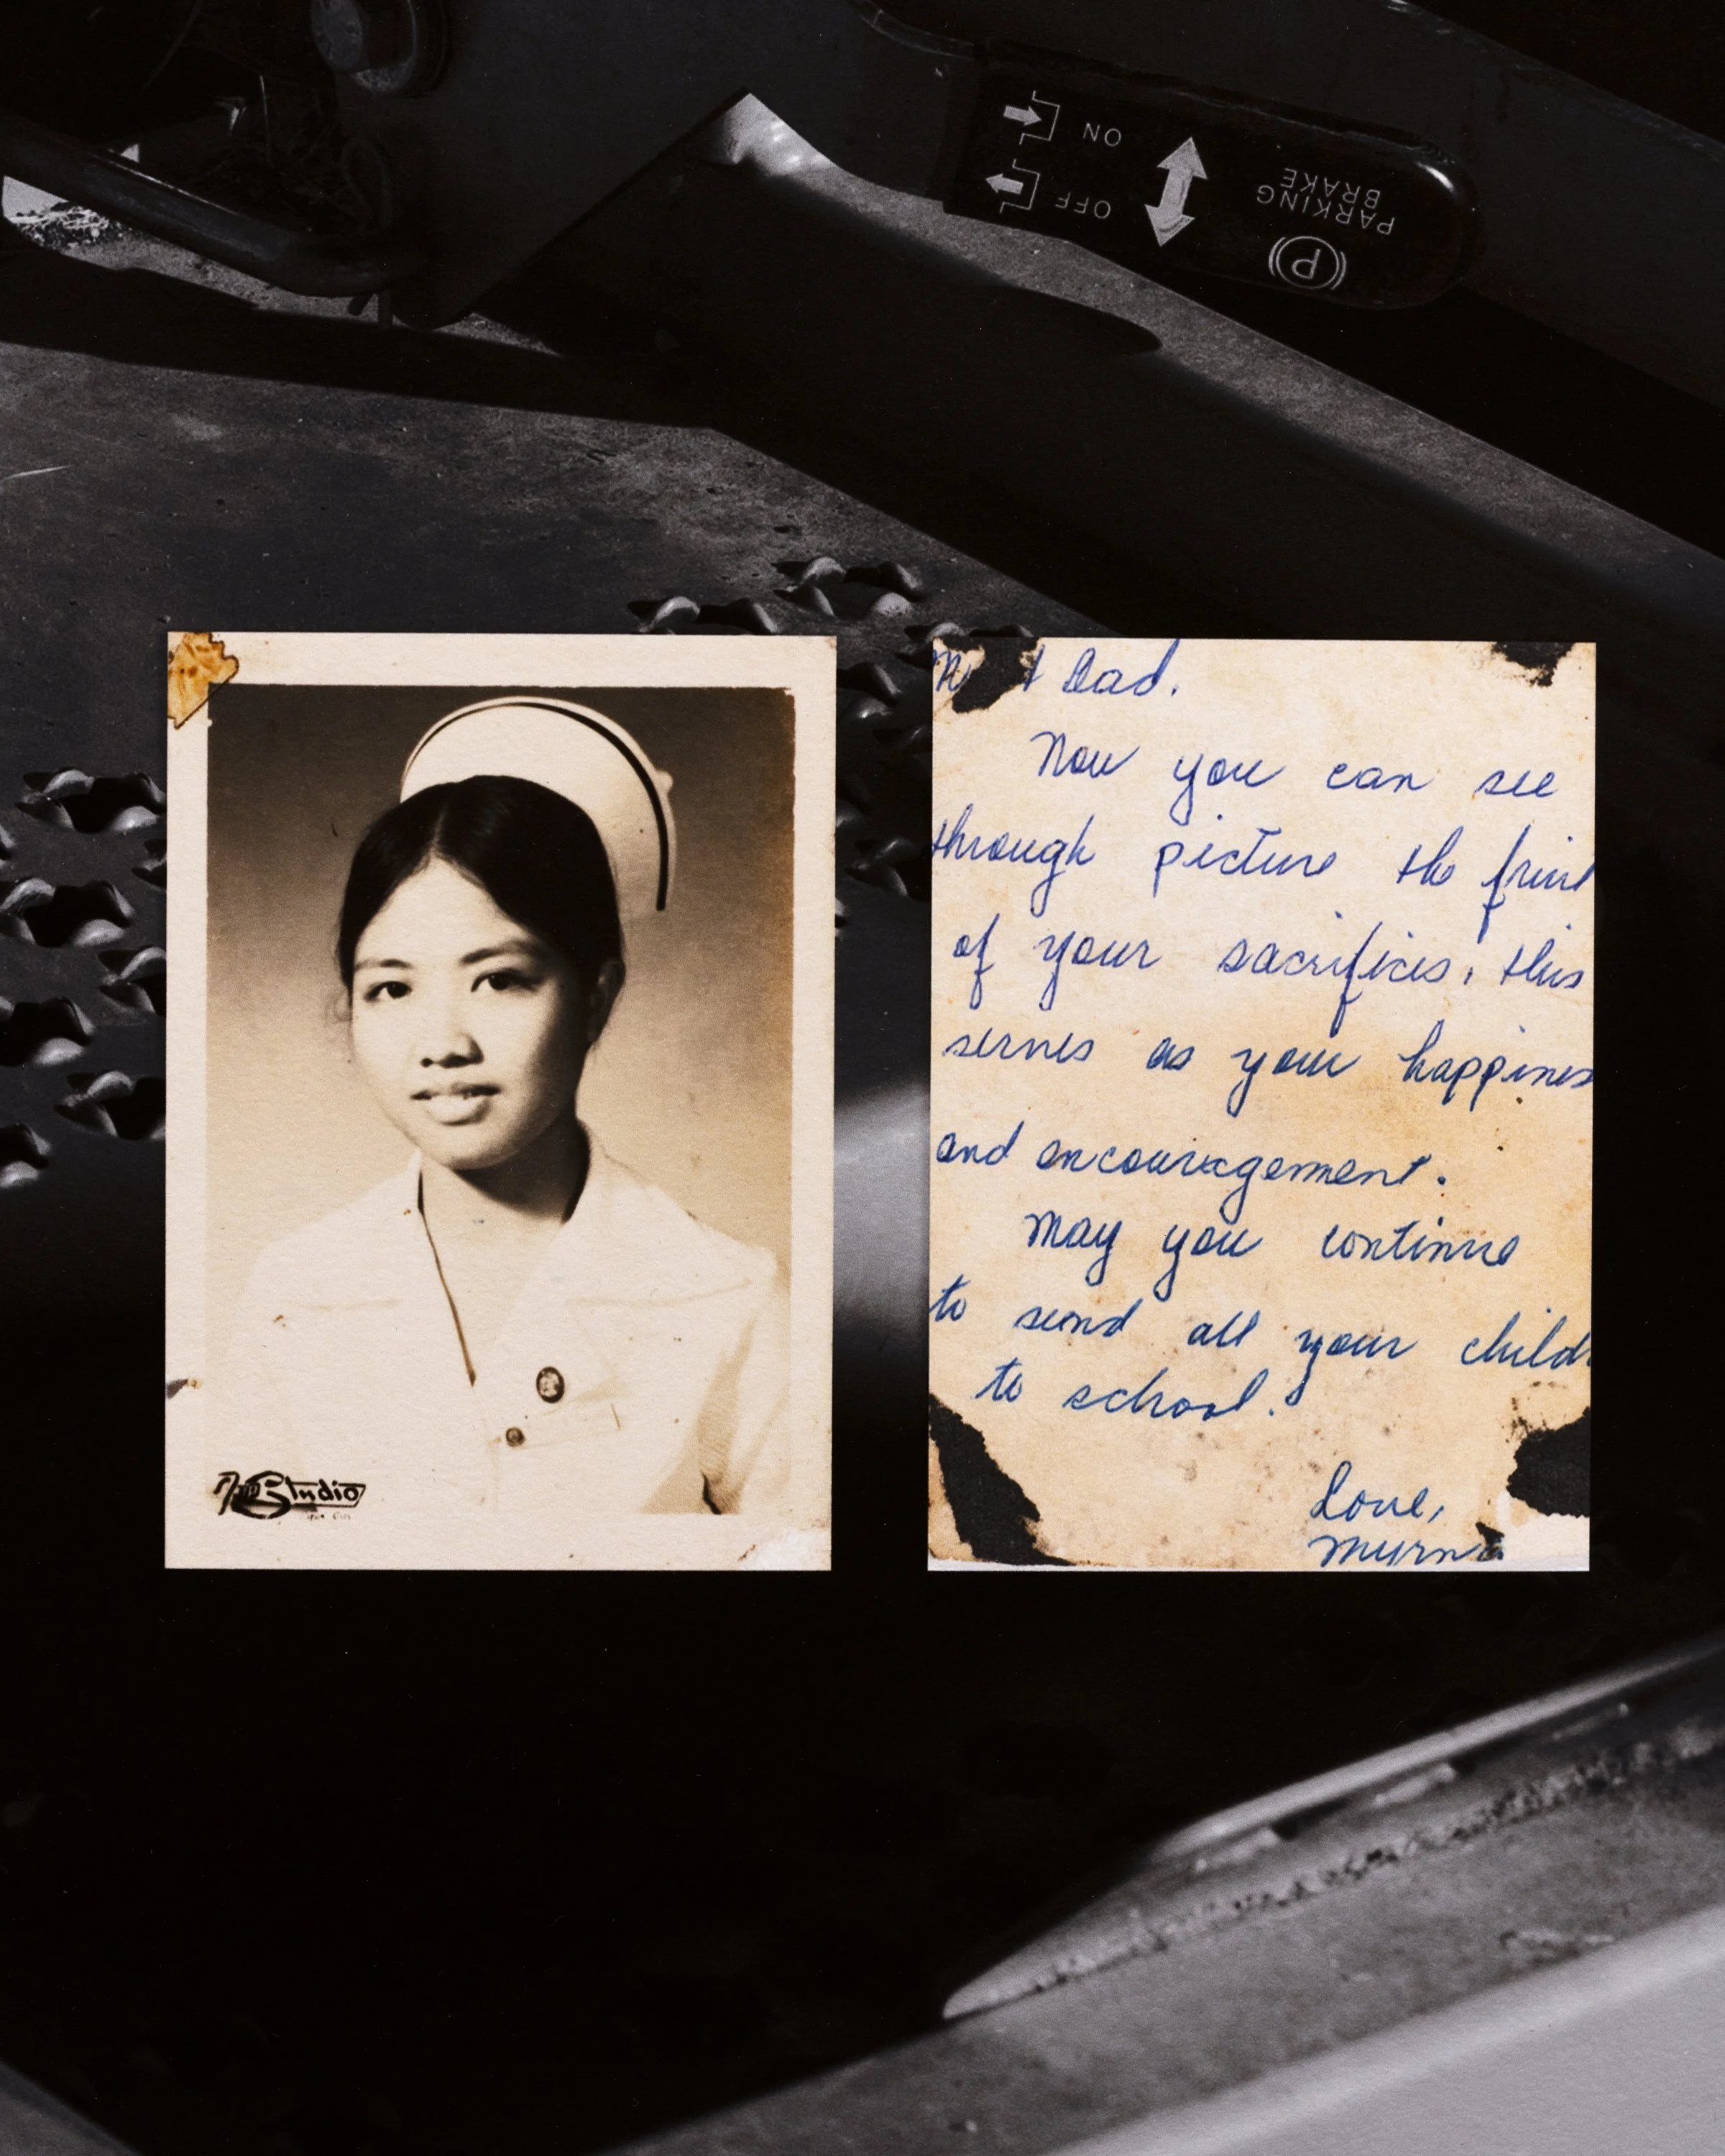 ON
OFF
PARKING
BRAKE
P
Dad.
Now you can see
through picture the fruit
of your sacrifices, this
serves as your happines
and encouragement.
May you continue
to send all your childr
to school.
Love,
Myrna
Studio